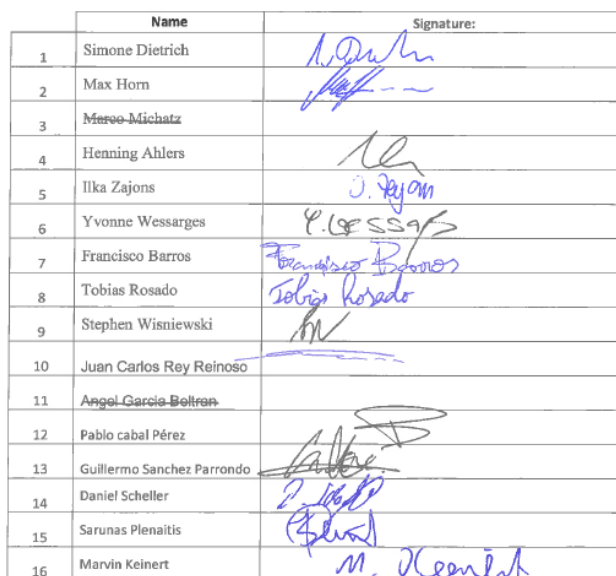 Name Signature:
1 Simone Dietrich
2 Max Horn
3 Marco Michatz
4 Henning Ahlers
5 Ilka Zajons
6 Yvonne Wessarges Y. WESSAR
7 Francisco Barros Francisco Barros
8 Tobias Rosado Tobias Rosado
9 Stephen Wisniewski
10 Juan Carlos Rey Reinoso
11 Angel Garcia Beltran
12 Pablo cabal Pérez
13 Guillermo Sanchez Parrondo
14 Daniel Scheller
15 Sarunas Plenaitis
16 Marvin Keinert M.